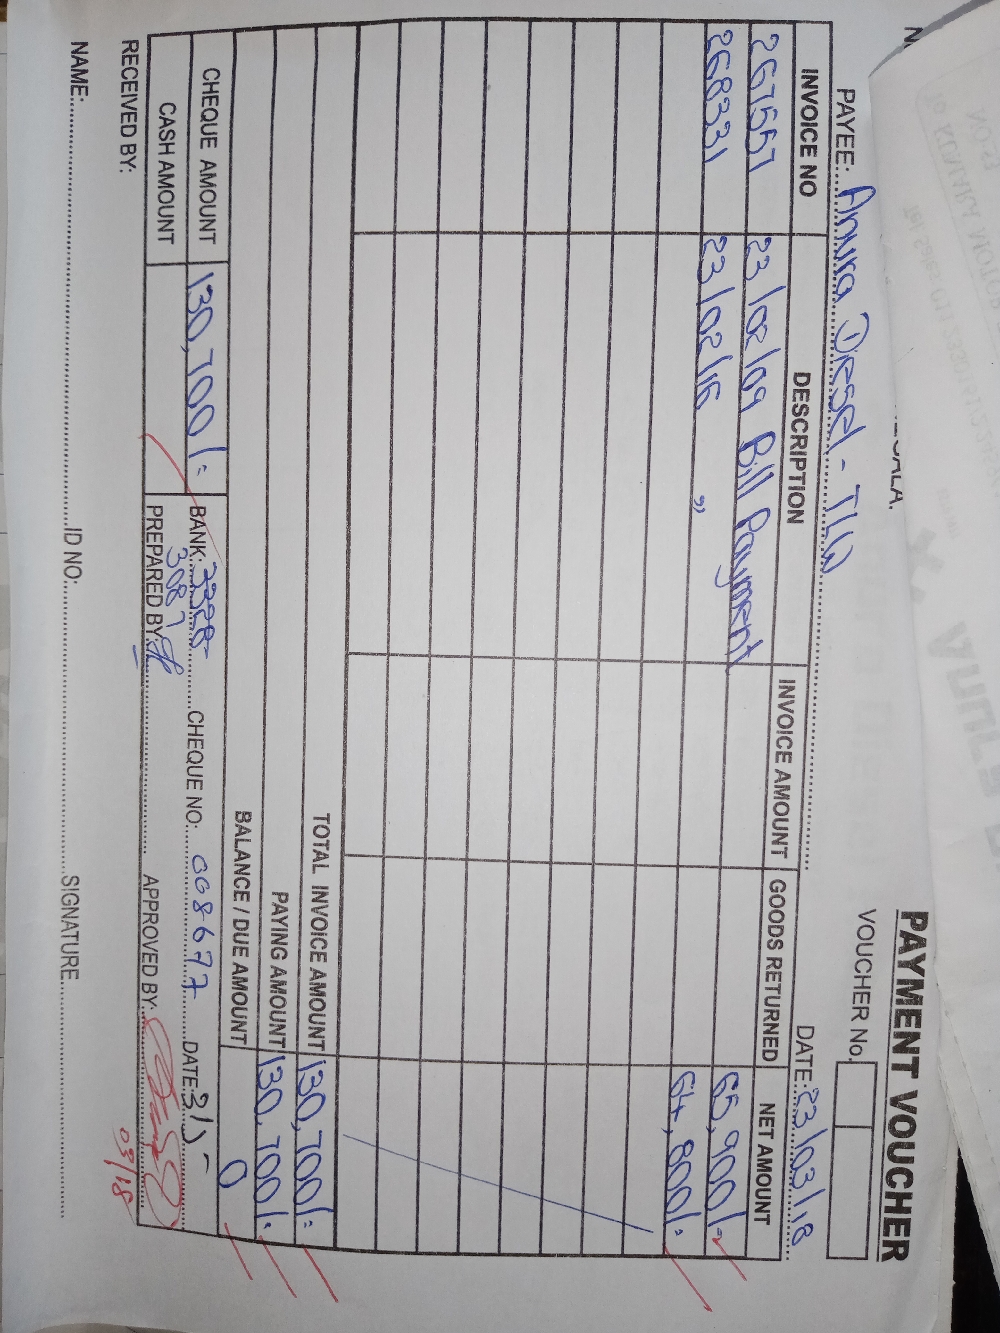 PAYMENT VOUCHER
VOUCHER No.
PAYEE: Anura Diesel - TLW
DATE: 23/03/18
INVOICE NO DESCRIPTION INVOICE AMOUNT GOODS RETURNED NET AMOUNT
267557 23/02/09 Bill Payment 65,900/-
268331 23/02/16 " 64,800/-
TOTAL INVOICE AMOUNT 130,700/-
PAYING AMOUNT 130,700/-
BALANCE / DUE AMOUNT 0
CHEQUE AMOUNT 130,700/- BANK: 3328 CHEQUE NO: 008677 DATE: 3/5
3087
CASH AMOUNT PREPARED BY: APPROVED BY:
03/18
RECEIVED BY:
NAME: ID NO: SIGNATURE